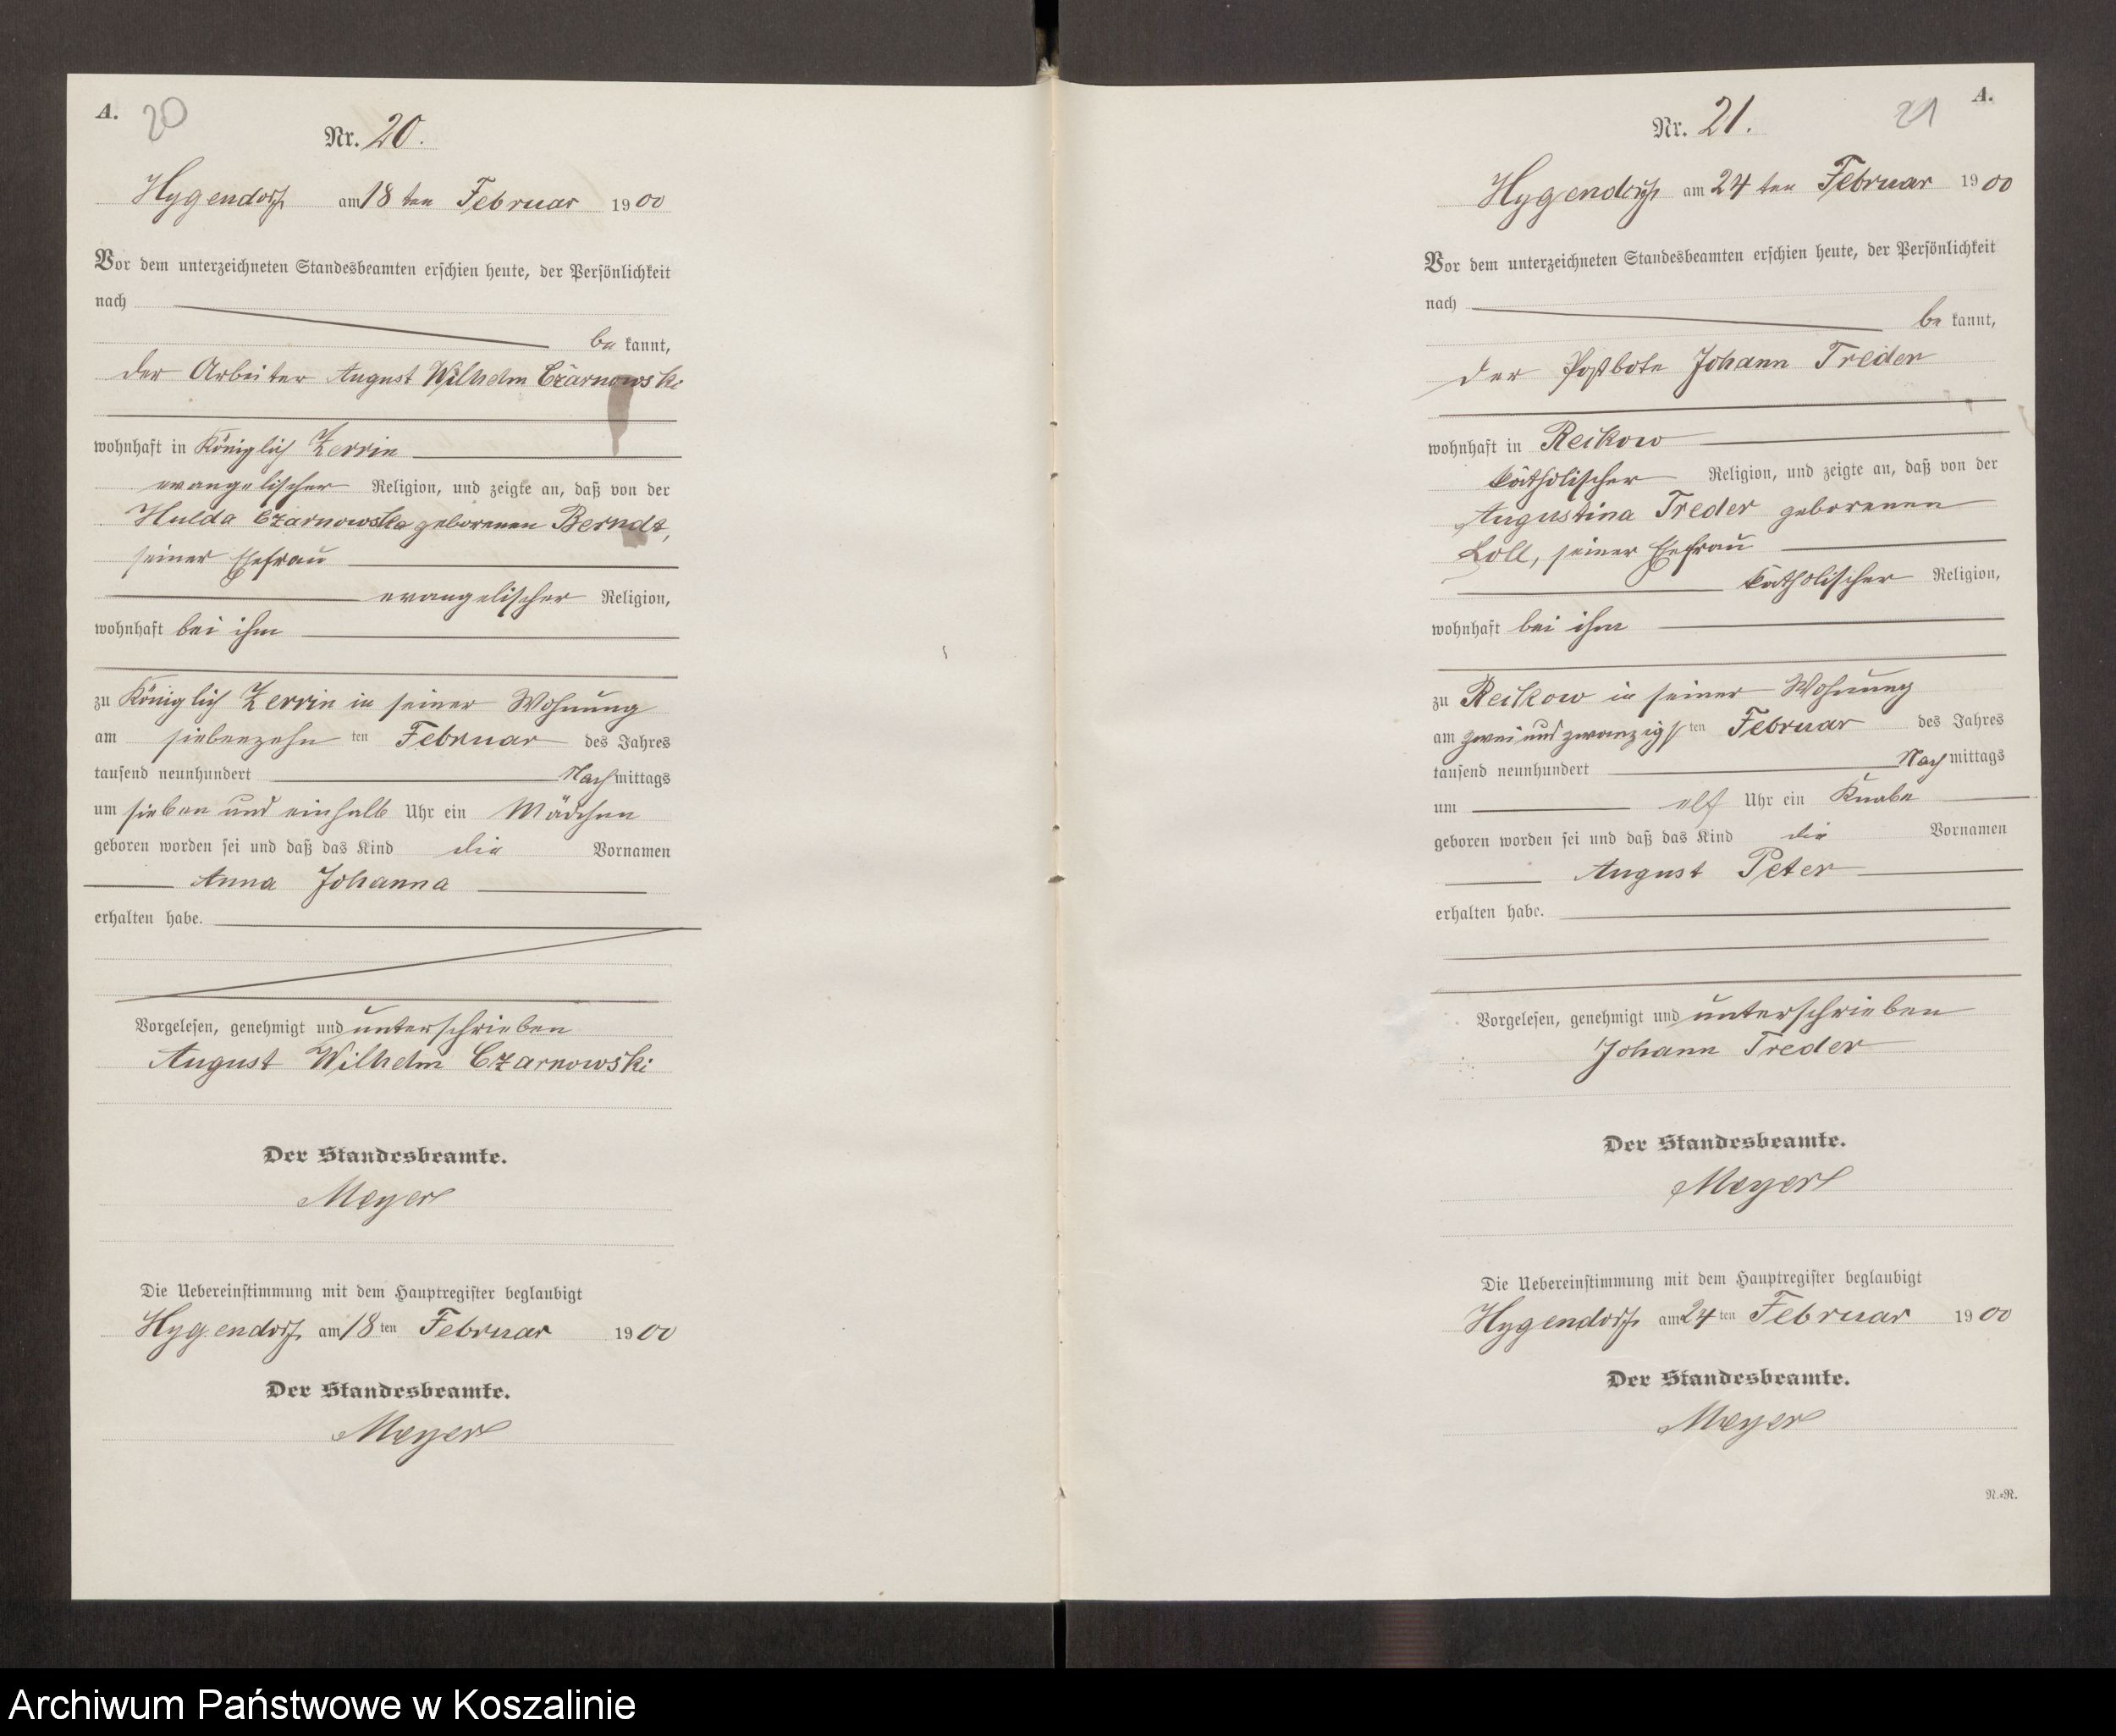 A.
20
Nr. 20.
Hygendorf am 18 ten Februar 1900
Vor dem unterzeichneten Standesbeamten erschien heute, der Persönlichkeit
nach
be kannt,
der Arbeiter August Wilhelm Czarnowski
wohnhaft in Königlich Zerrin
evangelischer Religion, und zeigte an, daß von der
Hulda Czarnowska geborenen Berndt,
seiner Ehefrau
evangelischer Religion,
wohnhaft bei ihm
zu Königlich Zerrin in seiner Wohnung
am siebenzehn ten Februar des Jahres
tausend neunhundert Nachmittags
um sieben und einhalb Uhr ein Mädchen
geboren worden sei und daß das Kind die Vornamen
Anna Johanna
erhalten habe.
Vorgelesen, genehmigt und unterschrieben
August Wilhelm Czarnowski
Der Standesbeamte.
Meyer
Die Uebereinstimmung mit dem Hauptregister beglaubigt
Hygendorf am 18 ten Februar 1900
Der Standesbeamte.
Meyer
A.
21
Nr. 21.
Hygendorf am 24 ten Februar 1900
Vor dem unterzeichneten Standesbeamten erschien heute, der Persönlichkeit
nach
be kannt,
der Postbote Johann Treder
wohnhaft in Reikow
katholischer Religion, und zeigte an, daß von der
Augustina Treder geborenen
Loll, seiner Ehefrau
katholischer Religion,
wohnhaft bei ihm
zu Reikow in seiner Wohnung
am zwei und zwanzigs ten Februar des Jahres
tausend neunhundert Nachmittags
um elf Uhr ein Knabe
geboren worden sei und daß das Kind die Vornamen
August Peter
erhalten habe.
Vorgelesen, genehmigt und unterschrieben
Johann Treder
Der Standesbeamte.
Meyer
Die Uebereinstimmung mit dem Hauptregister beglaubigt
Hygendorf am 24 ten Februar 1900
Der Standesbeamte.
Meyer
N.=N.
Archiwum Państwowe w Koszalinie